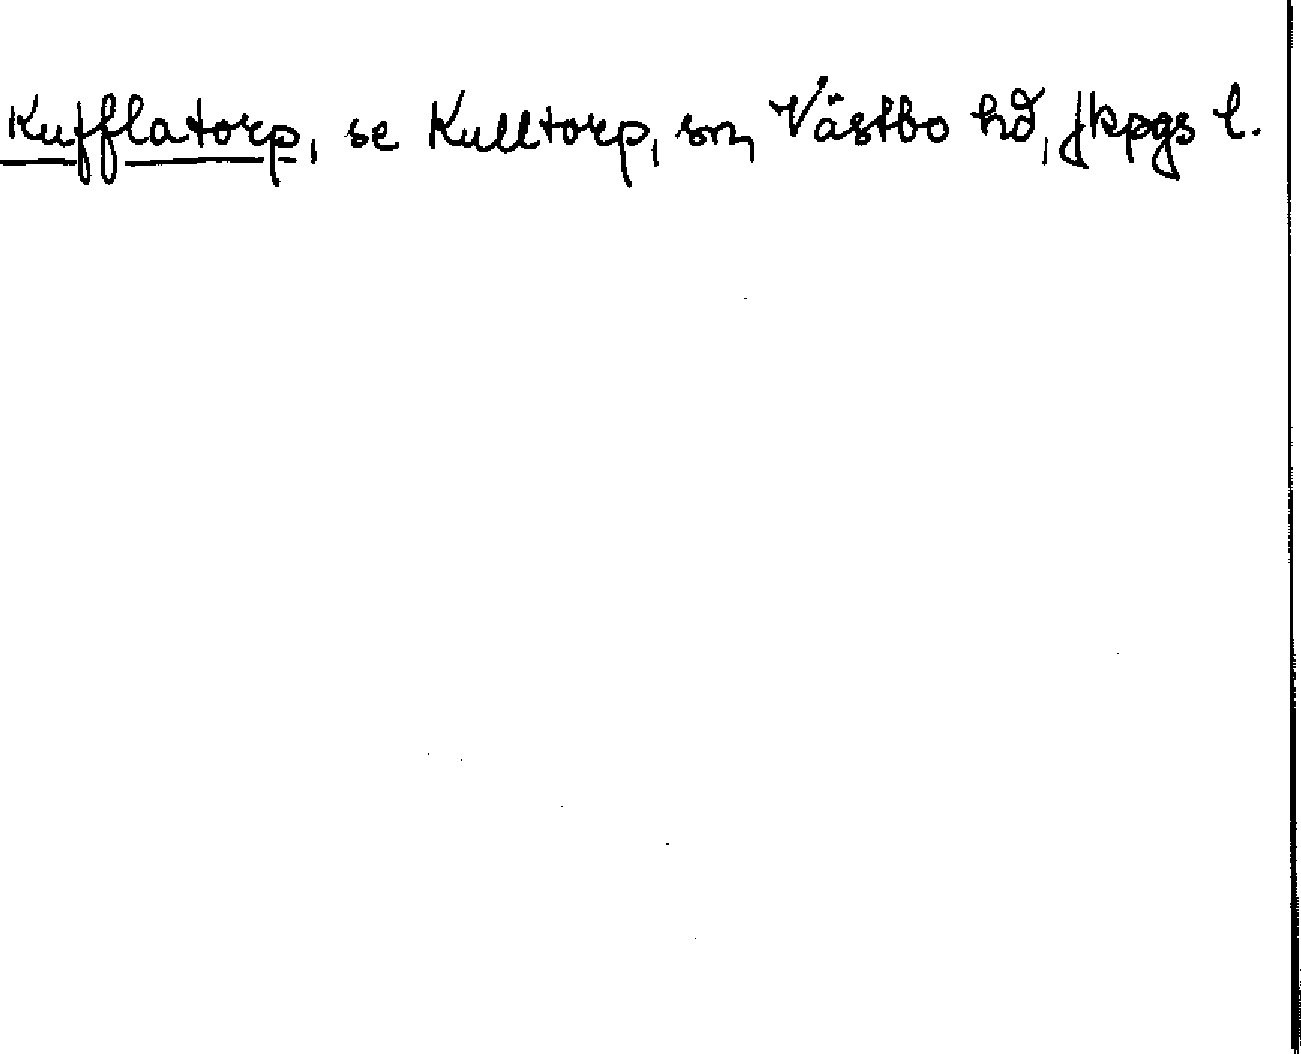 Kufflatorp, se Kulltorp, sn, Västbo hd, Jkpgs l.